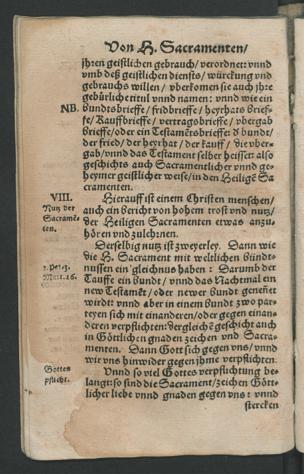 Von H. Sacramenten/
jhren geistlichen gebrauch/ verordnet: vnnd
vmb deß geistlichen diensts/ würckung vnd
gebrauchs willen/ vberkomen sie auch jhre
gebürliche titul vnnd namen: vnnd wie ein
NB.
bundtsbrieffe/ fridbrieffe/ heyrhats brieffe
fe/ Kauffbrieffe/ vertragsbrieffe/ vbergab
brieffe/ oder ein Testamētsbrieffe: d bundt/
der frid/ der heyrhat/ der kauff/ die vber-
gab/ vnnd das Testament selber heissen also
geschichts auch Sacramentlicher vnnd ge-
heymer geistlicher weise/ in den Heiligē Sa
cramenten.
VIII.
Nutz der
Sacramē-
ten.
Hierauff ist einem Christen menschen/
auch ein bericht von hohem trost vnd nutz/
der Heiligen Sacramenten etwas anzu-
hören vnd zulehrnen.
Derselbig nutz ist zweyerley. Dann wie
die H. Sacrament mit weltlichen bündt-
1. Pet. 3.
Matt. 26.
nussen ein gleichnus haben: Darumb der
Tauffe ein bundt/ vnnd das Nachtmal ein
new Testamēt/ oder newer bundt genennet
wirdt: vnnd aber in einem bundt zwo par-
teyen sich mit einander/ oder gegen einan-
deren verpflichten: dergleichē geschicht auch
in Göttlichen gnaden zeichen vnd Sacra-
menten. Dann Gott sich gegen vns/ vnnd
wir vns hinwider gegen jhme verpflichten.
Gottes
pflicht.
Vnnd so viel Gottes verpflichtung be-
langt: so sind die Sacrament/ zeichen Gött-
licher liebe vnnd gnaden gegen vns: vnnd
stercken